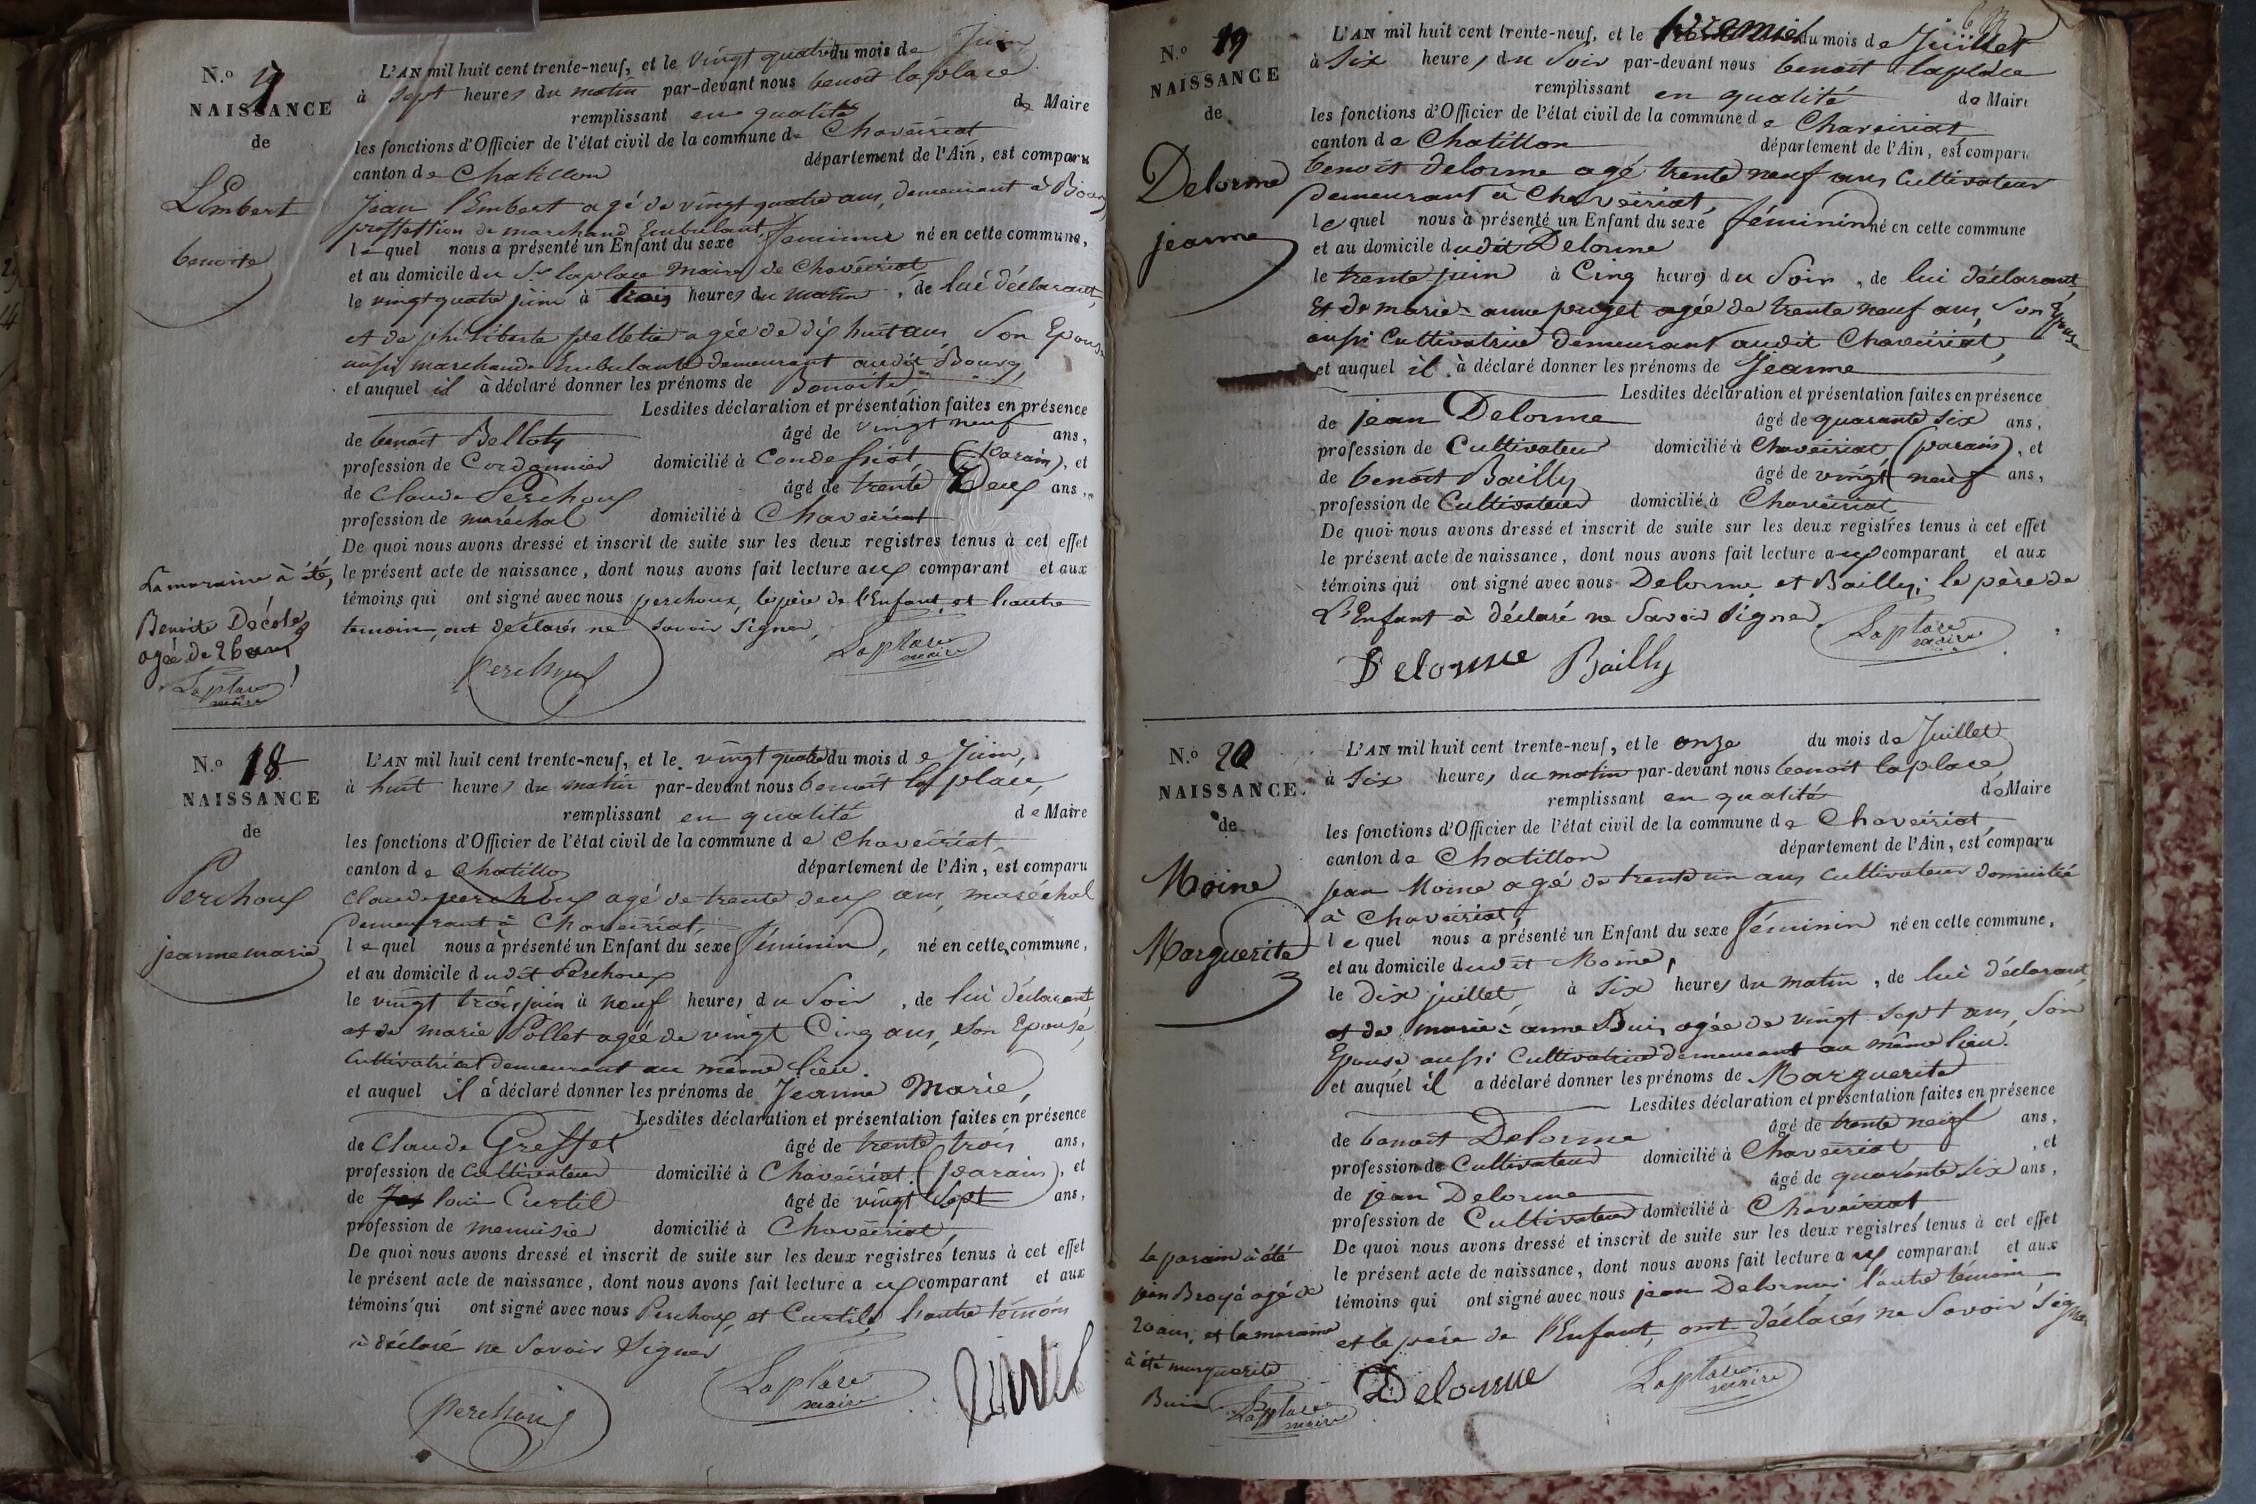 N.o 17
NAISSANCE
de
LEmbert
benoite
L'AN mil huit cent trente-neuf, et le vingt quatre du mois de Juin
à sept heures du matin par-devant nous benoit laplace
remplissant en qualité de Maire
les fonctions d'Officier de l'état civil de la commune de Chaveiriat
canton de Chatillon département de l'Ain, est comparu
Jean l'Embert agé de vingt quatre ans, demeurant à Bourg
proffession de marchand Embulant,
lequel nous a présenté un Enfant du sexe feminin né en cette commune,
et au domicile du Sr laplace Maire de Chaveiriat
le vingt quatre juin à trois heures du matin, de lui déclarant,
et de philiberte pelletier agée de dix huit ans, Son Epouse
aussi marchande Embulante demeurant audit Bourg,
et auquel il à déclaré donner les prénoms de Benoite
Lesdites déclaration et présentation faites en présence
de benoit Bellaty âgé de vingt neuf ans,
profession de Cordonnier domicilié à Condessiat (parain), et
de Claude Perchoux âgé de trente Deux ans,
profession de maréchal domicilié à Chaveiriat
De quoi nous avons dressé et inscrit de suite sur les deux registres tenus à cet effet
le présent acte de naissance, dont nous avons fait lecture aux comparant et aux
témoins qui ont signé avec nous perchoux, le père de l'Enfant, et l'autre
temoin, ont déclarés ne savoir signer,
La maraine à été,
Benoite Décoles
agée de 26 ans,
Laplace
maire
Perchoux
Laplace
maire
N.o 18
NAISSANCE
de
Perchoux
jeanne marie
L'AN mil huit cent trente-neuf, et le vingt quatre du mois de Juin,
à huit heures du matin par-devant nous benoit laplace,
remplissant en qualité de Maire
les fonctions d'Officier de l'état civil de la commune de Chaveiriat,
canton de Chatillon département de l'Ain, est comparu
Claude perchoux agé de trente deux ans, maréchal
demeurant à Chaveiriat,
lequel nous à présenté un Enfant du sexe féminin, né en cette commune,
et au domicile dudit Perchoux
le vingt trois juin à neuf heures du Soir, de lui déclarant
et de marie Pollet agée de vingt Cinq ans, Son Epouse,
Cultivatrice demeurant au même lieu.
et auquel il à déclaré donner les prénoms de Jeanne Marie,
Lesdites déclaration et présentation faites en présence
de Claude Greffet âgé de trente trois ans,
profession de Cultivateur domicilié à Chaveiriat, (parain), et
de loui Curtil âgé de vingt Sept ans,
profession de menuisier domicilié à Chaveiriat,
De quoi nous avons dressé et inscrit de suite sur les deux registres tenus à cet effet
le présent acte de naissance, dont nous avons fait lecture a ux comparant et aux
témoins qui ont signé avec nous Perchoux, et Curtil, l'autre témoin
à déclaré ne savoir signer
Perchoux
Laplace
maire
N.o 19
NAISSANCE
de
Delorme
jeanne
L'AN mil huit cent trente-neuf, et le premier du mois de Juillet
à Six heures du Soir par-devant nous benoit laplace
remplissant en qualité de Maire
les fonctions d'Officier de l'état civil de la commune de Chaveiriat
canton de Chatillon département de l'Ain, est comparu
benoit delorme agé trente neuf ans Cultivateur
demeurant à Chaveiriat,
lequel nous à présenté un Enfant du sexe féminin né en cette commune
et au domicile dudit Delorme
le trente juin à Cinq heures du Soir, de lui déclarant,
Et de marie-anne puget agée de trente neuf ans, Son Epouse
aussi Cultivatrice demeurant audit Chaveiriat,
et auquel il à déclaré donner les prénoms de Jeanne
Lesdites déclaration et présentation faites en présence
de jean Delorme âgé de quarante six ans,
profession de Cultivateur domicilié à Chaveiriat, (parain), et
de benoit Bailly âgé de vingt neuf ans,
profession de Cultivateur domicilié à Chaveiriat
De quoi nous avons dressé et inscrit de suite sur les deux registres tenus à cet effet
le présent acte de naissance, dont nous avons fait lecture aux comparant et aux
témoins qui ont signé avec nous Delorme et Bailly; le père de
L'Enfant à déclaré ne Savoir Signer.
Laplace
maire
Delorme Bailly
N.o 20
NAISSANCE.
de
Moine
Marguerite
L'AN mil huit cent trente-neuf, et le onze du mois de Juillet
à Six heures du matin par-devant nous benoit laplace
remplissant en qualité de Maire
les fonctions d'Officier de l'état civil de la commune de Chaveiriat,
canton de Chatillon département de l'Ain, est comparu
jean Moine agé de trente un ans Cultivateur domicilié
à Chaveiriat,
lequel nous a présenté un Enfant du sexe féminin né en cette commune,
et au domicile dudit Moine,
le Dix juillet, à Six heures du matin, de lui déclarant,
et de marie-anne Buir agée de vingt sept ans, Son
Epouse aussi Cultivatrice demeurant au même lieu.
et auquel il a déclaré donner les prénoms de Marguerite
Lesdites déclaration et présentation faites en présence
de benoit Delorme âgé de trente neuf ans,
profession de Cultivateur domicilié à Chaveiriat, et
de jean Delorme âgé de quarante six ans,
profession de Cultivateur domicilié à Chaveiriat
De quoi nous avons dressé et inscrit de suite sur les deux registres tenus à cet effet
le présent acte de naissance, dont nous avons fait lecture a ux comparant et aux
témoins qui ont signé avec nous jean Delorme; l'autre témoin
et le père de l'Enfant, ont déclarés ne Savoir Signer
le parain à été
jean Broyé agé de
20 ans, et la maraine
à été marguerite
Buir
Laplace
maire
Delorme
Laplace
maire